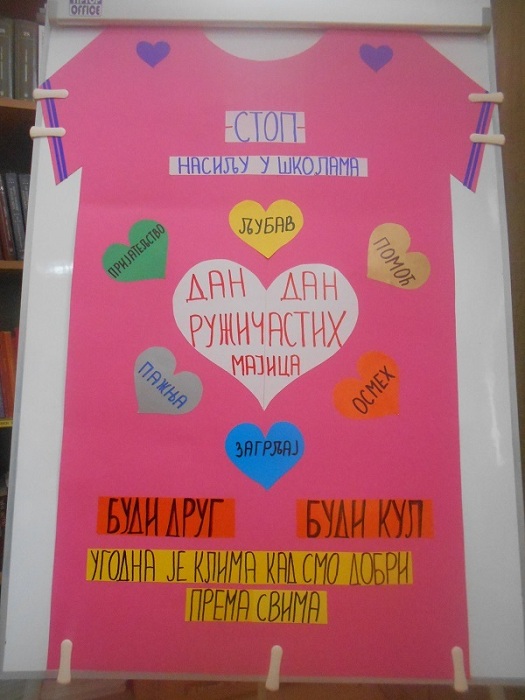 OFFICE
-СТОП-
НАСИЉУ У ШКОЛАМА
ЉУБАВ
ПРИЈАТЕЉСТВО
ПОМОЋ
ДАН ДАН
РУЖИЧАСТИХ
МАЈИЦА
ПАЖЊА
ОСМЕХ
ЗАГРЉАЈ
БУДИ ДРУГ
БУДИ КУЛ
УГОДНА ЈЕ КЛИМА КАД СМО ДОБРИ
ПРЕМА СВИМА